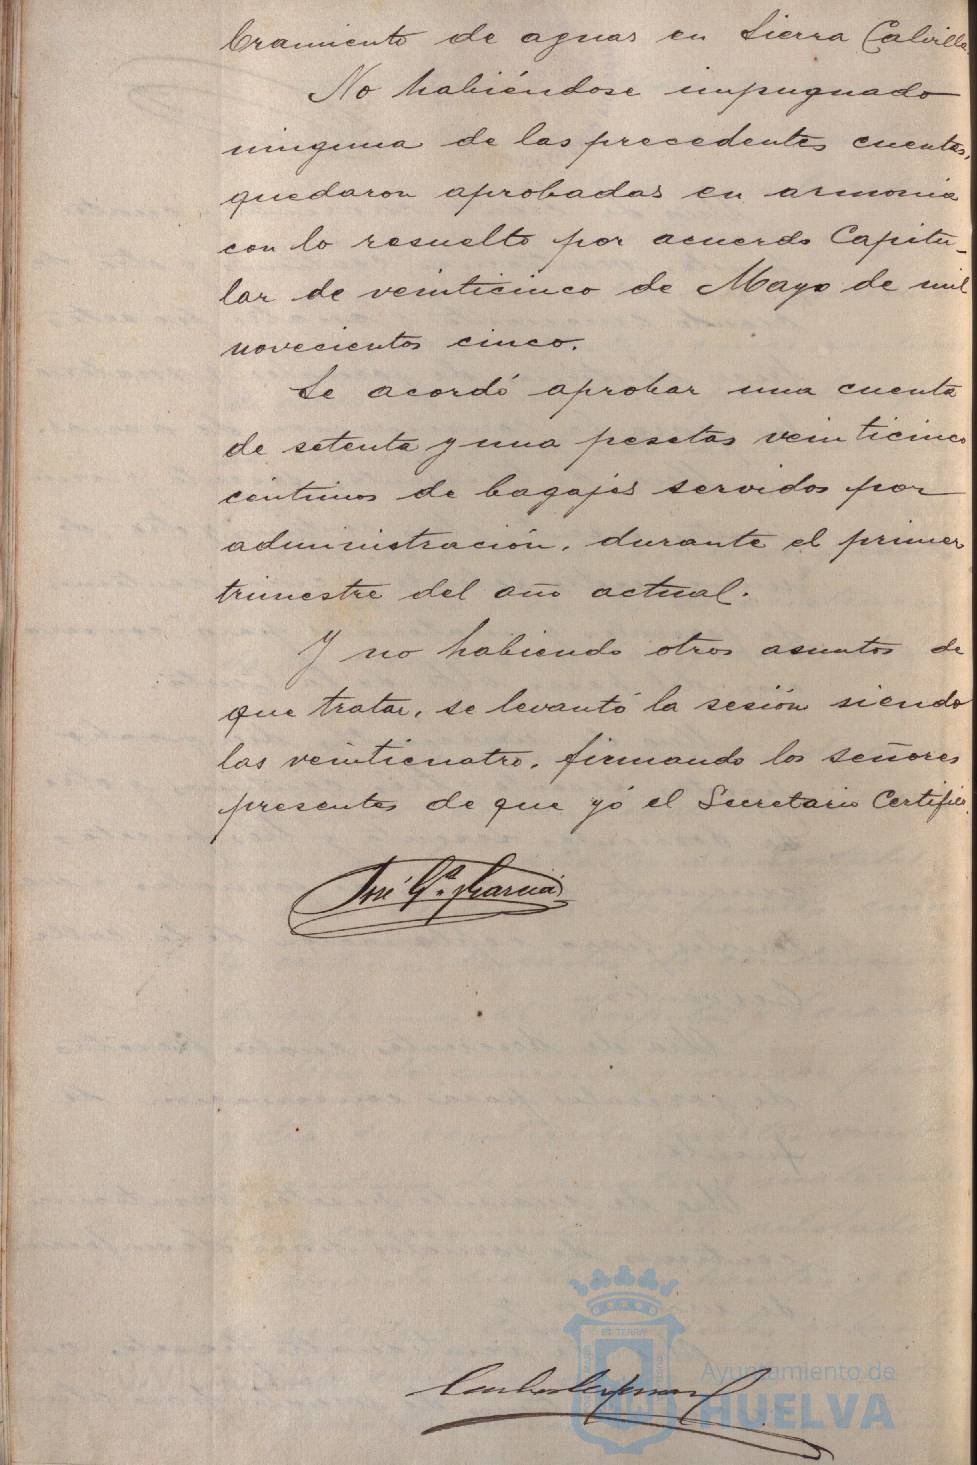 bramiento de aguas en Sierra Calvilla.
No habiéndose impugnado
ninguna de las precedentes cuentas,
quedaron aprobadas en armonia
con lo resuelto por acuerdo Capitu-
lar de veinticinco de Mayo de mil
novecientos cinco.
Se acordó aprobar una cuenta
de setenta y una pesetas veinticinco
céntimos de bagajes servidos por
administración, durante el primer
trimestre del año actual.
Y no habiendo otros asuntos de
que tratar, se levantó la sesión siendo
las veinticuatro, firmando los señores
presentes de que yó el Secretario Certifico.
José Gª. y García
Ayuntamiento de
HUELVA